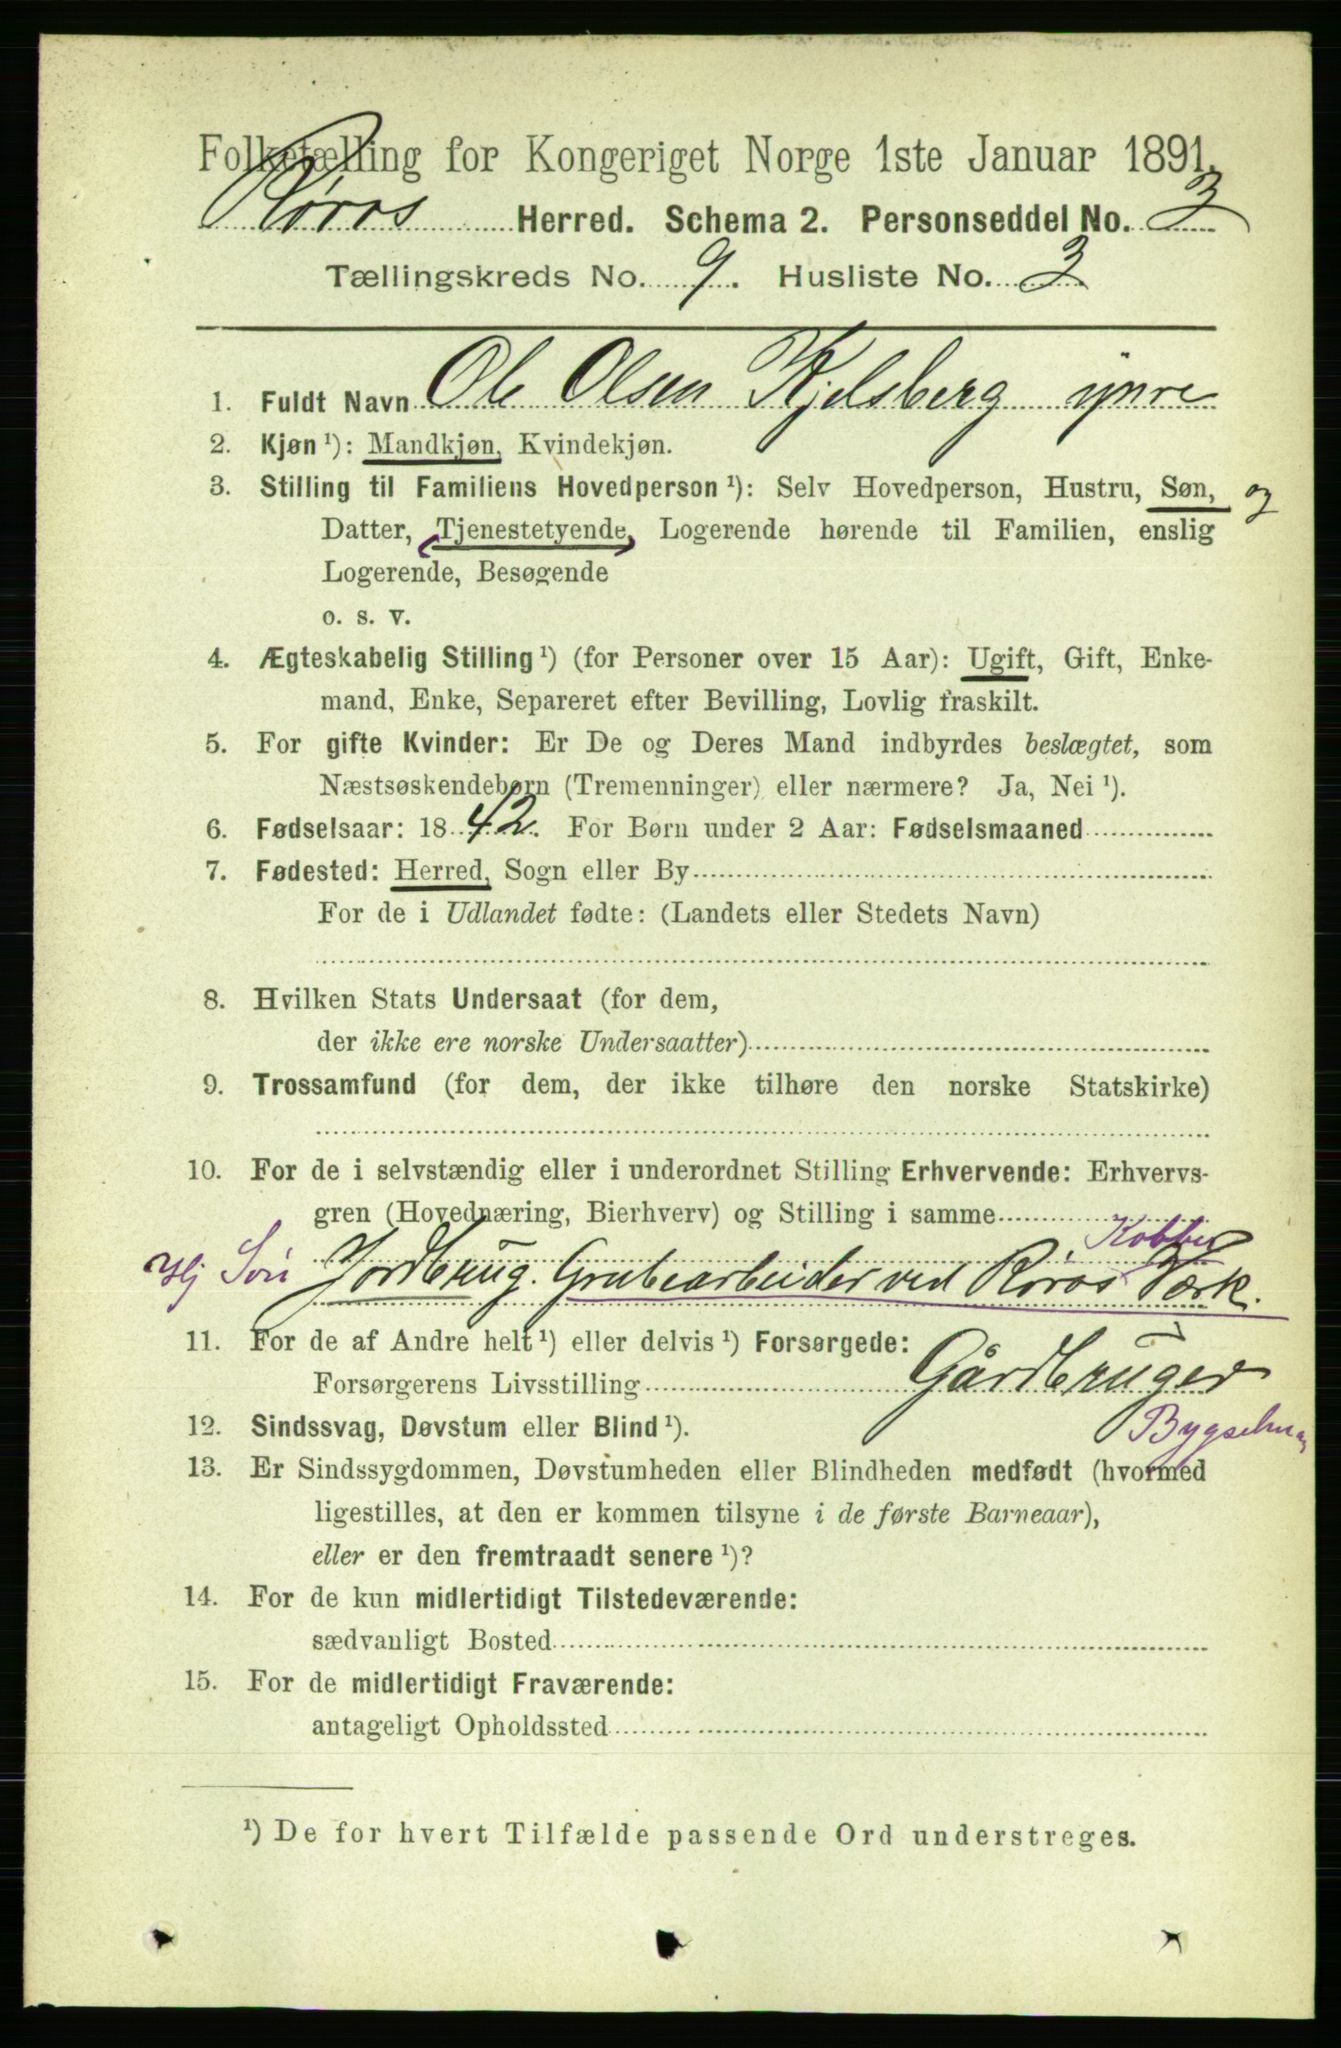 Folketælling for Kongeriget Norge 1ste Januar 1891.
Røros Herred. Schema 2. Personseddel No. 3
Tællingskreds No. 9. Husliste No. 3
1. Fuldt Navn Ole Olsen Kjelsberg yngre
2. Kjøn ¹): Mandkjøn, Kvindekjøn.
3. Stilling til Familiens Hovedperson ¹): Selv Hovedperson, Hustru, Søn, og
Datter, Tjenestetyende, Logerende hørende til Familien, enslig
Logerende, Besøgende
o. s. v.
4. Ægteskabelig Stilling ¹) (for Personer over 15 Aar): Ugift, Gift, Enke-
mand, Enke, Separeret efter Bevilling, Lovlig fraskilt.
5. For gifte Kvinder: Er De og Deres Mand indbyrdes beslægtet, som
Næstsøskendebørn (Tremenninger) eller nærmere? Ja, Nei ¹).
6. Fødselsaar: 1842. For Børn under 2 Aar: Fødselsmaaned
7. Fødested: Herred, Sogn eller By
For de i Udlandet fødte: (Landets eller Stedets Navn)
8. Hvilken Stats Undersaat (for dem,
der ikke ere norske Undersaatter)
9. Trossamfund (for dem, der ikke tilhøre den norske Statskirke)
10. For de i selvstændig eller i underordnet Stilling Erhvervende: Erhvervs-
gren (Hovednæring, Bierhverv) og Stilling i samme
Kobber
Hj Søn Jordbrug. Grubearbeider ved Røros Værk.
11. For de af Andre helt ¹) eller delvis ¹) Forsørgede:
Forsørgerens Livsstilling Gårdbruger
12. Sindssvag, Døvstum eller Blind ¹). Bygselm
13. Er Sindssygdommen, Døvstumheden eller Blindheden medfødt (hvormed
ligestilles, at den er kommen tilsyne i de første Barneaar),
eller er den fremtraadt senere ¹)?
14. For de kun midlertidigt Tilstedeværende:
sædvanligt Bosted
15. For de midlertidigt Fraværende:
antageligt Opholdssted
¹) De for hvert Tilfælde passende Ord understreges.